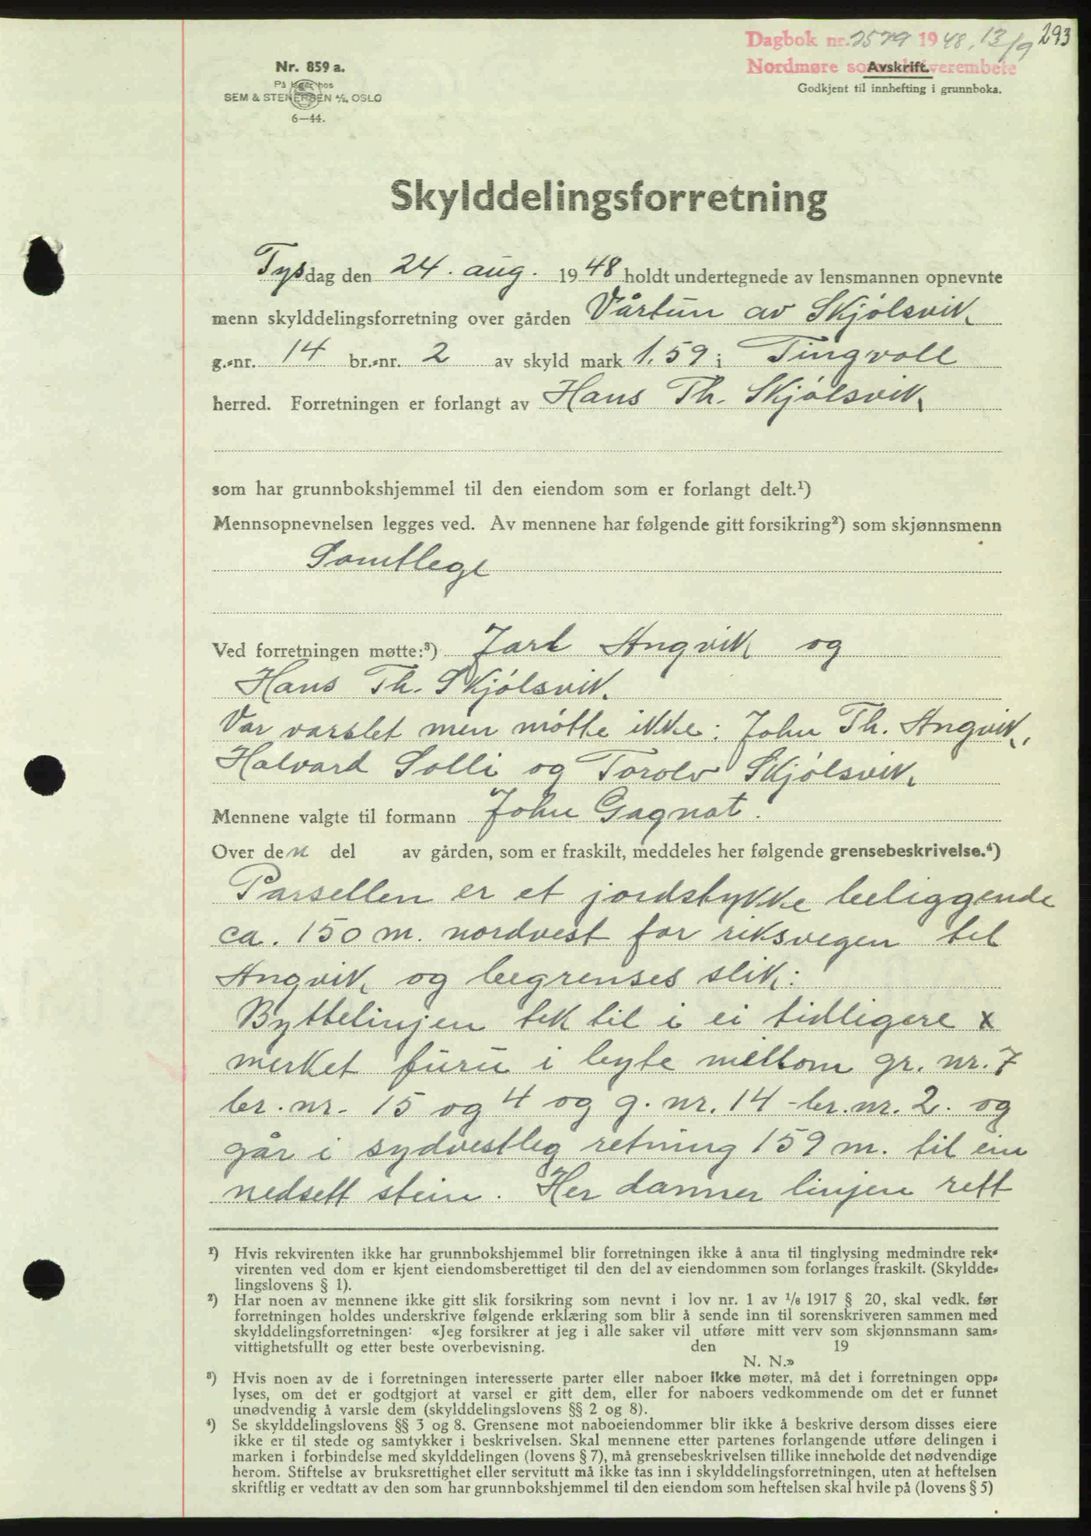 Dagbok nr. 2579 1948, 13/9 293
Nordmøre sorenskriverembete
Avskrift.
Godkjent til innhefting i grunnboka.
Nr. 859 a.
På lager hos
SEM & STENERSEN A/S, OSLO
6—44.
Skylddelingsforretning
Tysdag den 24. aug. 1948 holdt undertegnede av lensmannen opnevnte
menn skylddelingsforretning over gården Vårtun av Skjølsvik
g.-nr. 14 br.-nr. 2 av skyld mark 1,59 i Tingvoll
herred. Forretningen er forlangt av Hans Th. Skjølsvik
som har grunnbokshjemmel til den eiendom som er forlangt delt.¹)
Mennsopnevnelsen legges ved. Av mennene har følgende gitt forsikring²) som skjønnsmenn
Samtlege
Ved forretningen møtte:³) Jarl Angvik og
Hans Th. Skjølsvik.
Var varslet men møtte ikke: John Th. Angvik,
Halvard Solli og Torolv Skjølsvik
Mennene valgte til formann John Gagnat.
Over den del av gården, som er fraskilt, meddeles her følgende grensebeskrivelse.⁴)
Parsellen er et jordstykke beliggende
ca. 150 m. nordvest for riksvegen til
Angvik og begrenses slik:
Byttelinjen tek til i ei tidligere x
merket furu i byte mellom gr. nr. 7
br. nr. 15 og 4 og g. nr. 14 - br. nr. 2. og
går i sydvestleg retning 159 m. til ein
nedsett stein. Her danner linjen rett
¹) Hvis rekvirenten ikke har grunnbokshjemmel blir forretningen ikke å anta til tinglysing medmindre rek-
virenten ved dom er kjent eiendomsberettiget til den del av eiendommen som forlanges fraskilt. (Skyldde-
lingslovens § 1).
²) Har noen av mennene ikke gitt slik forsikring som nevnt i lov nr. 1 av 1/8 1917 § 20, skal vedk. før
forretningen holdes underskrive følgende erklæring som blir å sende inn til sorenskriveren sammen med
skylddelingsforretningen: «Jeg forsikrer at jeg i alle saker vil utføre mitt verv som skjønnsmann sam-
vittighetsfullt og etter beste overbevisning. den 19
N. N.»
³) Hvis noen av de i forretningen interesserte parter eller naboer ikke møter, må det i forretningen opp-
lyses, om det er godtgjort at varsel er gitt dem, eller for naboers vedkommende om det er funnet
unødvendig å varsle dem (skylddelingslovens §§ 2 og 8).
⁴) Se skylddelingslovens §§ 3 og 8. Grensene mot naboeiendommer blir ikke å beskrive dersom disses eiere
ikke er til stede og samtykker i beskrivelsen. Skal mennene etter partenes forlangende utføre delingen i
marken i forbindelse med skylddelingen (lovens § 7), må grensebeskrivelsen tillike inneholde det nødvendige
herom. Stiftelse av bruksrettighet eller servitutt må ikke tas inn i skylddelingsforretningen, uten at heftelsen
skriftlig er vedtatt av den som har grunnbokshjemmel til den eiendom som heftelsen skal hvile på (lovens § 5)